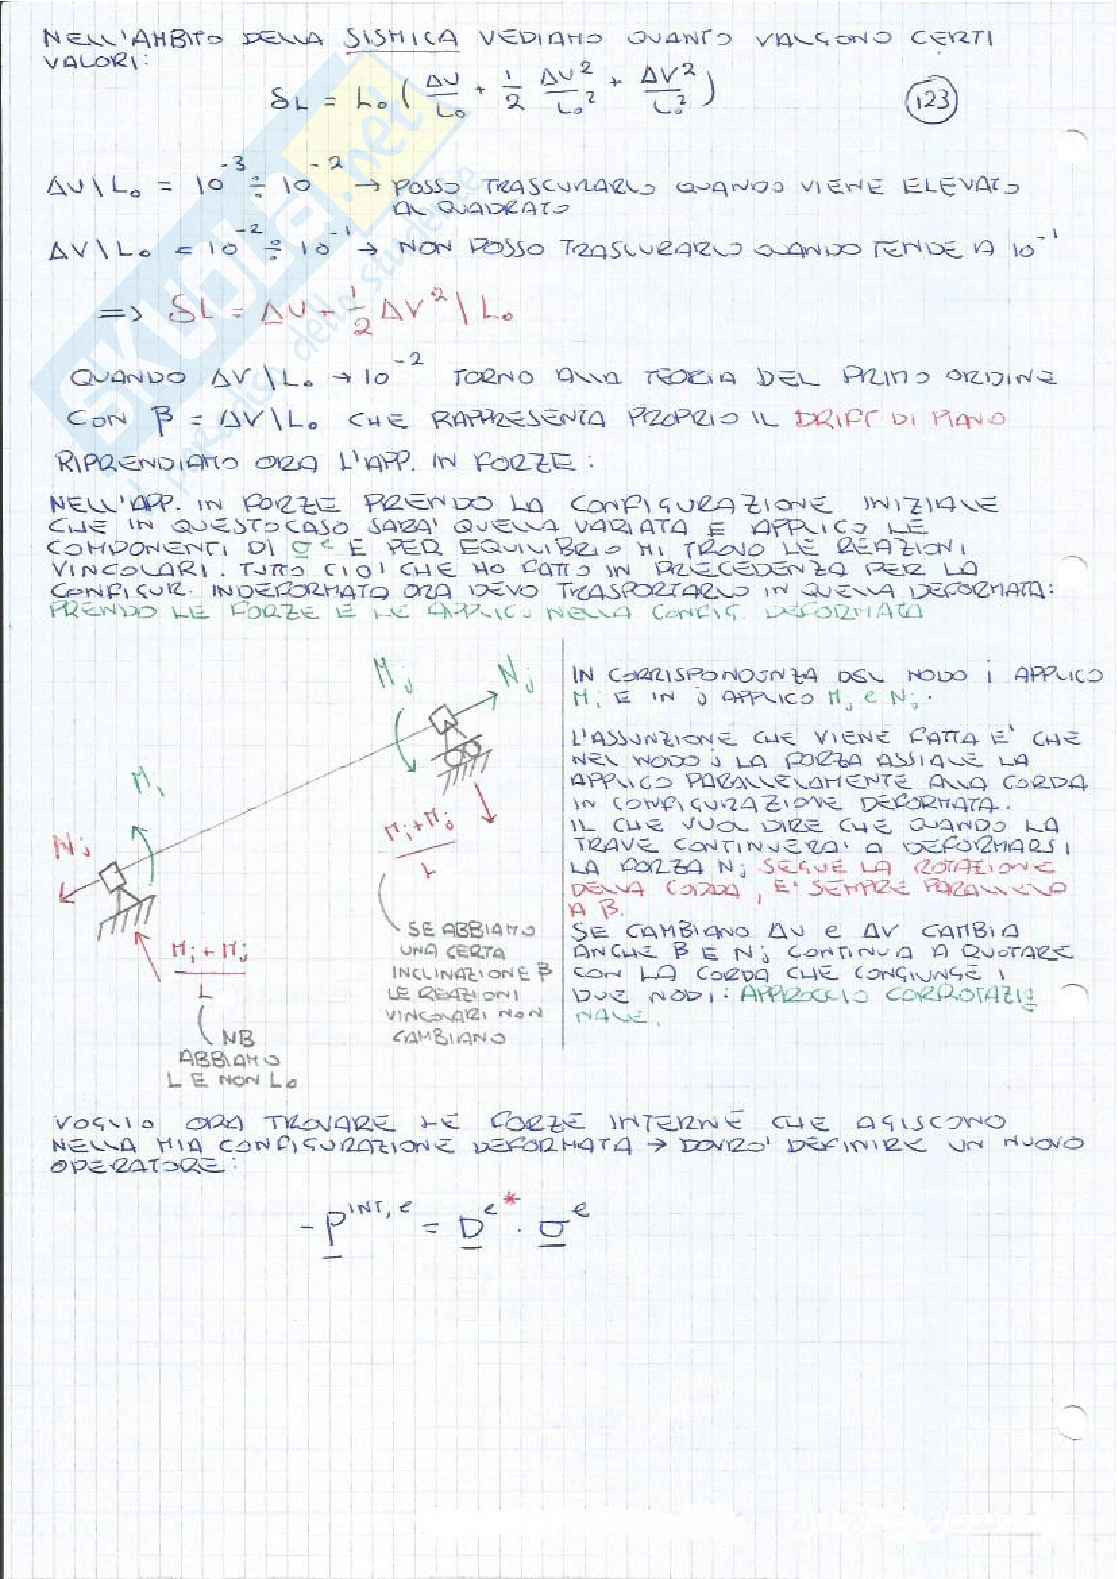 NELL'AMBITO DELLA SISMICA VEDIAMO QUANTO VALGONO CERTI
VALORI:
δL = L₀ ( ΔU/L₀ + 1/2 ΔU²/L₀² + ΔV²/L₀² )
123
ΔU\L₀ = 10⁻³ ÷ 10⁻² → POSSO TRASCURARLO QUANDO VIENE ELEVATO
AL QUADRATO
ΔV\L₀ = 10⁻² ÷ 10⁻¹ → NON POSSO TRASCURARLO QUANDO TENDE A 10⁻¹
=> δL = ΔU + 1/2 ΔV² \ L₀
QUANDO ΔV\L₀ → 10⁻² TORNO ALLA TEORIA DEL PRIMO ORDINE
CON β = ΔV\L₀ CHE RAPPRESENTA PROPRIO IL DRIFT DI PIANO
RIPRENDIAMO ORA L'APP. IN FORZE:
NELL'APP. IN FORZE PRENDO LA CONFIGURAZIONE INIZIALE
CHE IN QUESTO CASO SARA' QUELLA VARIATA E APPLICO LE
COMPONENTI DI σᵉ E PER EQUILIBRIO MI TROVO LE REAZIONI
VINCOLARI. TUTTO CIO' CHE HO FATTO IN PRECEDENZA PER LA
CONFIGUR. INDEFORMATA ORA DEVO TRASPORTARLO IN QUELLA DEFORMATA:
PRENDO LE FORZE E LE APPLICO NELLA CONFIG. DEFORMATA
Mj
Nj
Mi
Nj
Mi+Mj
L
Mi+Mj
L
SE ABBIAMO
UNA CERTA
INCLINAZIONE β
LE REAZIONI
VINCOLARI NON
CAMBIANO
NB
ABBIAMO
L E NON L₀
IN CORRISPONDENZA DEL NODO i APPLICO
Mi E IN j APPLICO Mj e Nj.
L'ASSUNZIONE CHE VIENE FATTA E' CHE
NEL NODO j LA FORZA ASSIALE LA
APPLICO PARALLELAMENTE ALLA CORDA
IN CONFIGURAZIONE DEFORMATA.
IL CHE VUOL DIRE CHE QUANDO LA
TRAVE CONTINUERA' A DEFORMARSI
LA FORZA Nj SEGUE LA ROTAZIONE
DELLA CORDA, E' SEMPRE PARALLELO
A β.
SE CAMBIANO ΔU e ΔV CAMBIA
ANCHE β E Nj CONTINUA A RUOTARE
CON LA CORDA CHE CONGIUNGE I
DUE NODI: APPROCCIO COROTAZIO
NALE.
VOGLIO ORA TROVARE LE FORZE INTERNE CHE AGISCONO
NELLA MIA CONFIGURAZIONE DEFORMATA → DOVRO' DEFINIRE UN NUOVO
OPERATORE:
- P^INT,e = D^e* · σ^e
SKUOLA.net